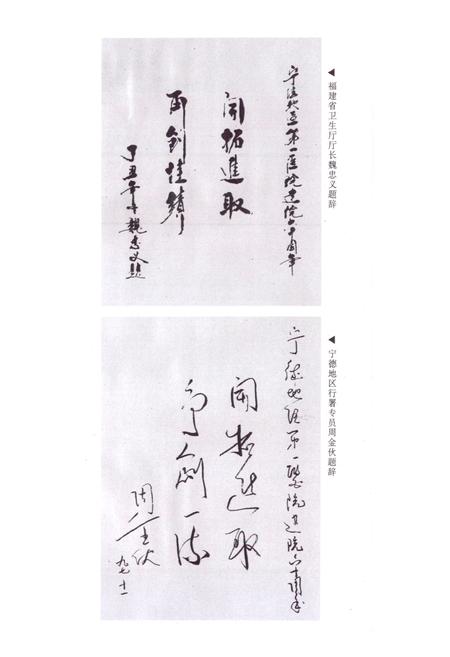 福建省卫生厅厅长魏忠义题辞
宁德地区第一医院建院六十周年
開拓進取
再創佳績
丁丑年 魏忠义題
宁德地区行署专员周金伙题辞
宁德地区第一醫院建院六十周年
開拓進取
争創一流
周金伙
九七.十一